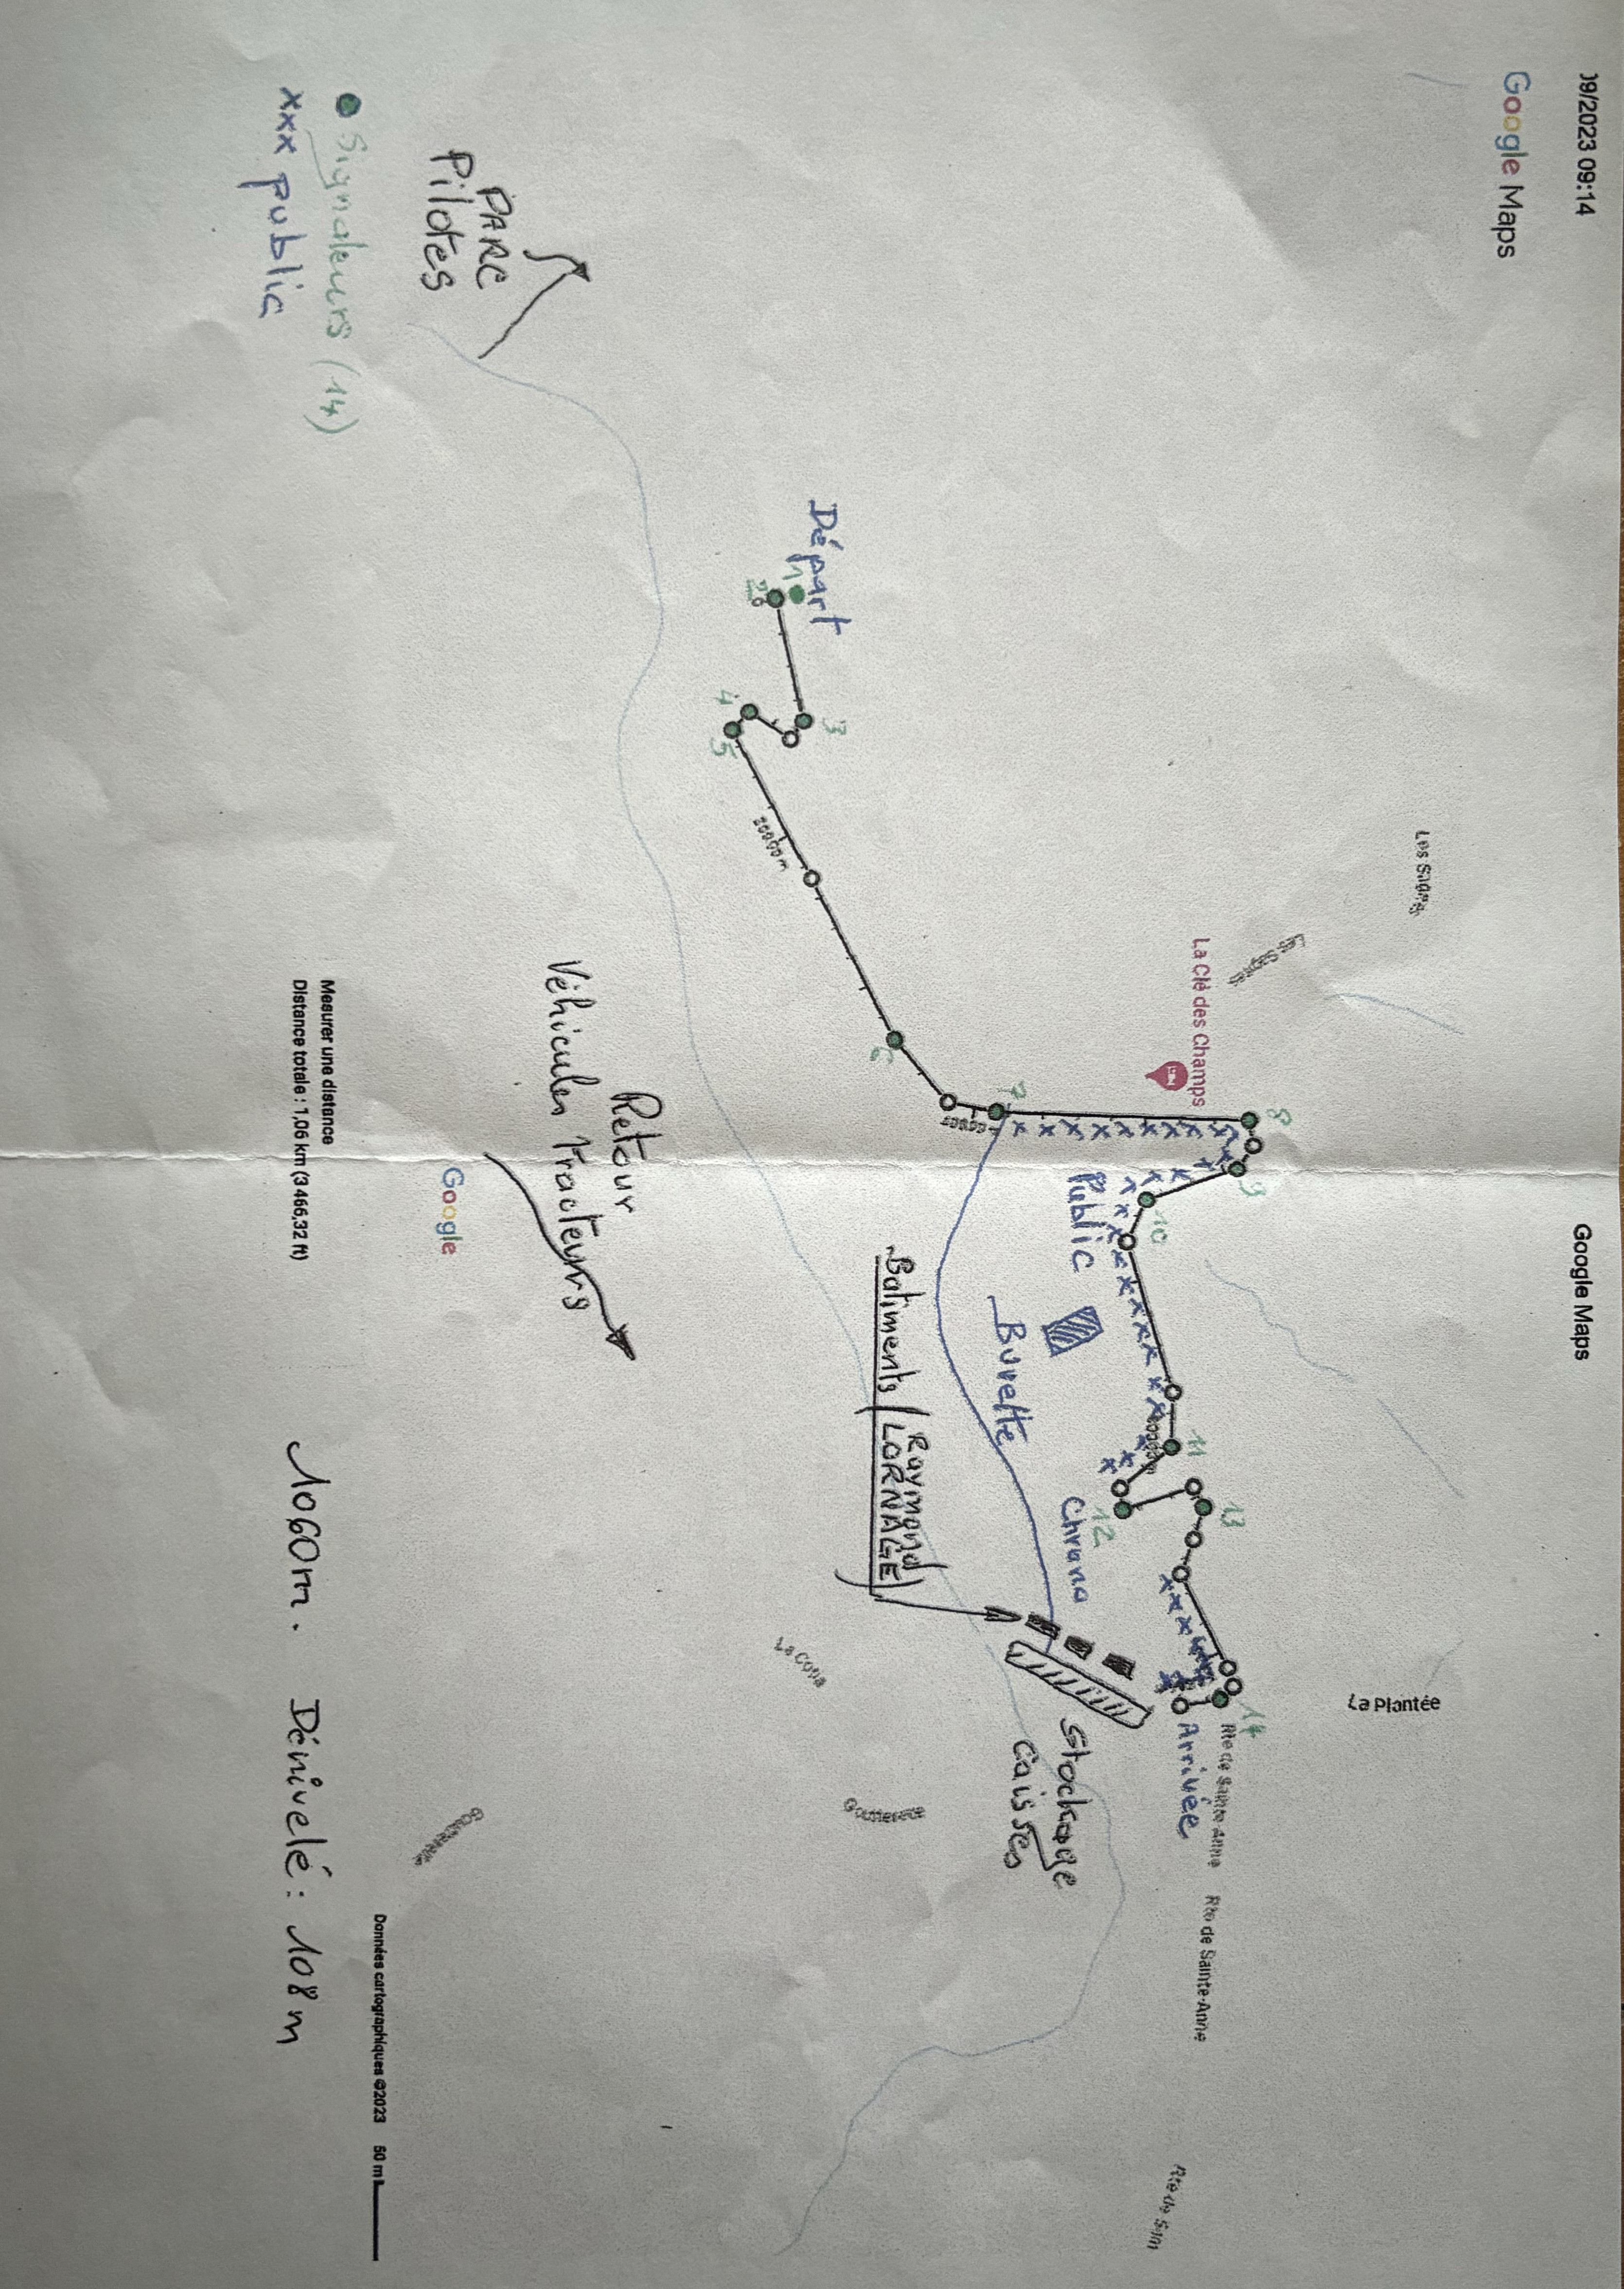 09/2023 09:14
Google Maps
Google Maps
Les Sagnes
La Clé des Champs
La Plantée
Départ
1
2
3
4
5
200,00 m
6
7
8
9
10
11
12
13
14
Public
Buvette
Chrono
Arrivée
Rte de Sainte-Anne
Rte de Sainte-Anne
Batiments (Raymond
LORNAGE)
Stockage
Caisses
La Copa
PARC
Pilotes
Retour
Véhicules Tracteurs
Google
Signaleurs (14)
xxx public
Mesurer une distance
Distance totale : 1,06 km (3 466,32 ft)
1060m. Dénivelé : 108 m
Données cartographiques ©2023 50 m